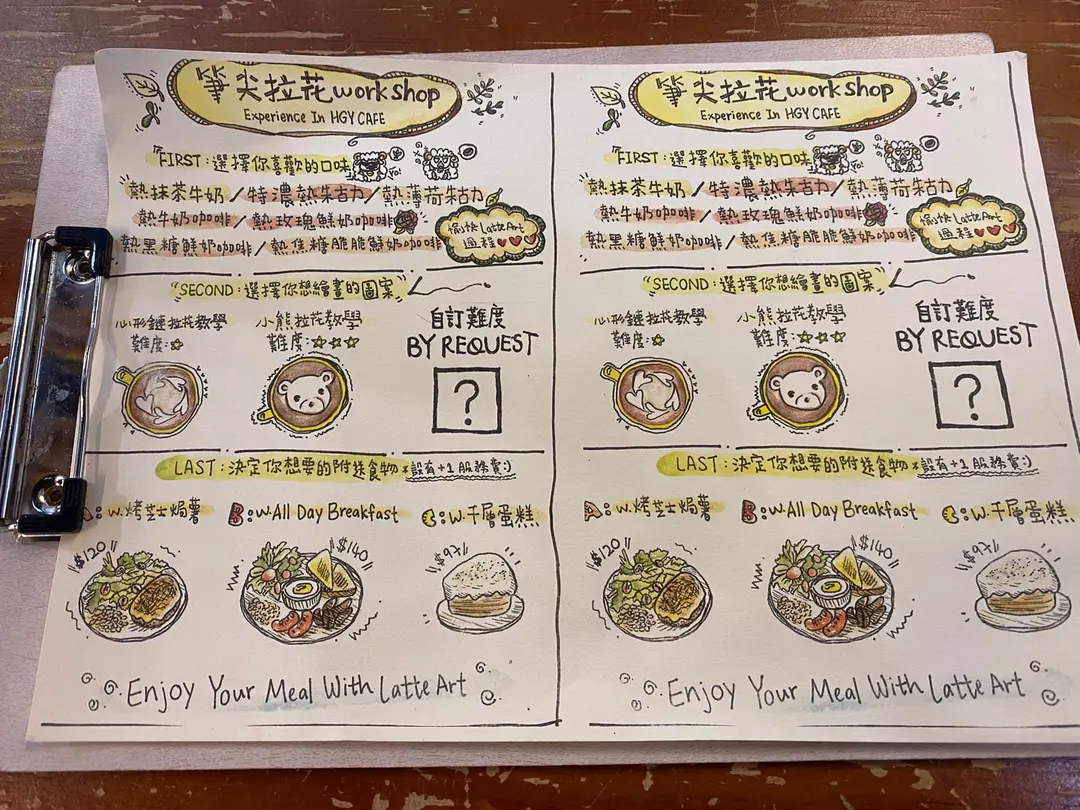 筆尖拉花workshop
Experience In HGY CAFE
FIRST:選擇你喜歡的口味
Yo!
熱抹茶牛奶/特濃熱朱古力/熱薄荷朱古力
熱牛奶咖啡/熱玫瑰鮮奶咖啡
熱黑糖鮮奶咖啡/熱焦糖脆脆鮮奶咖啡
愉快Latte Art
過程
SECOND:選擇你想繪畫的圖案
心形鏈拉花教學
難度:☆
小熊拉花教學
難度:☆☆☆
自訂難度
BY REQUEST
?
LAST:決定你想要的附送食物*設有+1服務費:)
A:w.烤芝士焗薯
B:w.All Day Breakfast
C:w.千層蛋糕
$120
$140
$97
Enjoy Your Meal With Latte Art
筆尖拉花workshop
Experience In HGY CAFE
FIRST:選擇你喜歡的口味
Yo!
熱抹茶牛奶/特濃熱朱古力/熱薄荷朱古力
熱牛奶咖啡/熱玫瑰鮮奶咖啡
熱黑糖鮮奶咖啡/熱焦糖脆脆鮮奶咖啡
愉快Latte Art
過程
SECOND:選擇你想繪畫的圖案
心形鏈拉花教學
難度:☆
小熊拉花教學
難度:☆☆☆
自訂難度
BY REQUEST
?
LAST:決定你想要的附送食物*設有+1服務費:)
A:w.烤芝士焗薯
B:w.All Day Breakfast
C:w.千層蛋糕
$120
$140
$97
Enjoy Your Meal With Latte Art